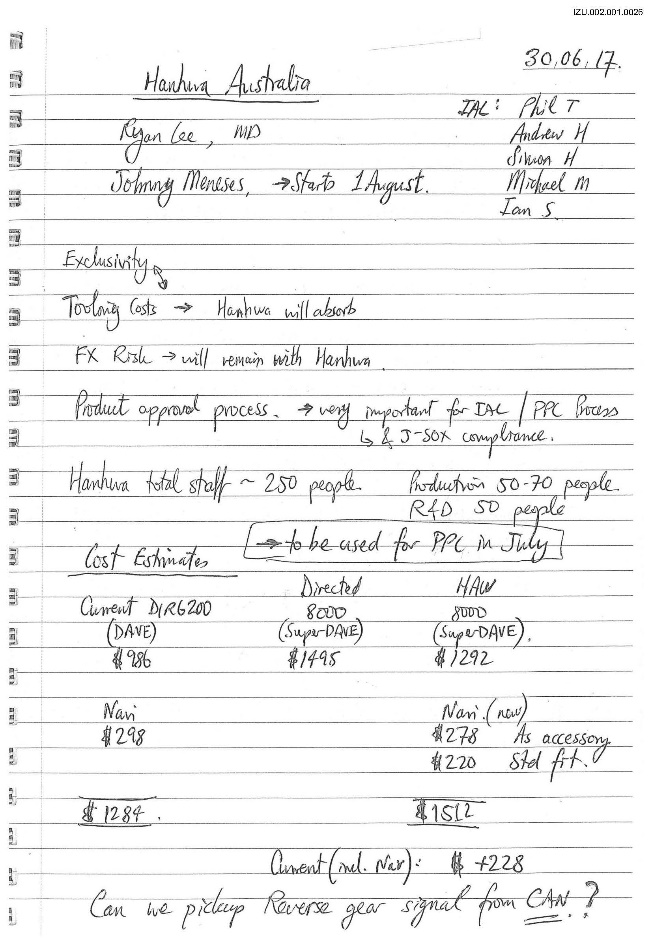 IZU.002.001.0026
30.06.17.
Hanhwa Australia
IAL: Phil T
Ryan Lee, MD
Andrew H
Simon H
Johnny Meneses, → Starts 1 August.
Michael M
Ian S.
Exclusivity
Tooling Costs → Hanhwa will absorb
FX Risk → will remain with Hanhwa.
Product approval process. → very important for IAL / PPC Process
↳ & J-SOX compliance.
Hanhwa total staff ~ 250 people. Production 50-70 people.
R&D 50 people
→ to be used for PPC in July
Cost Estimates
Directed HAW
Current DIR6200 8000 8000
(DAVE) (Super-DAVE) (Super-DAVE).
$986 $1495 $1292
Navi Navi. (new)
$298 $278 As accessory
$220 Std fit.
$1284. $1512
Current (incl. Nav): $ +228
Can we pickup Reverse gear signal from CAN.?